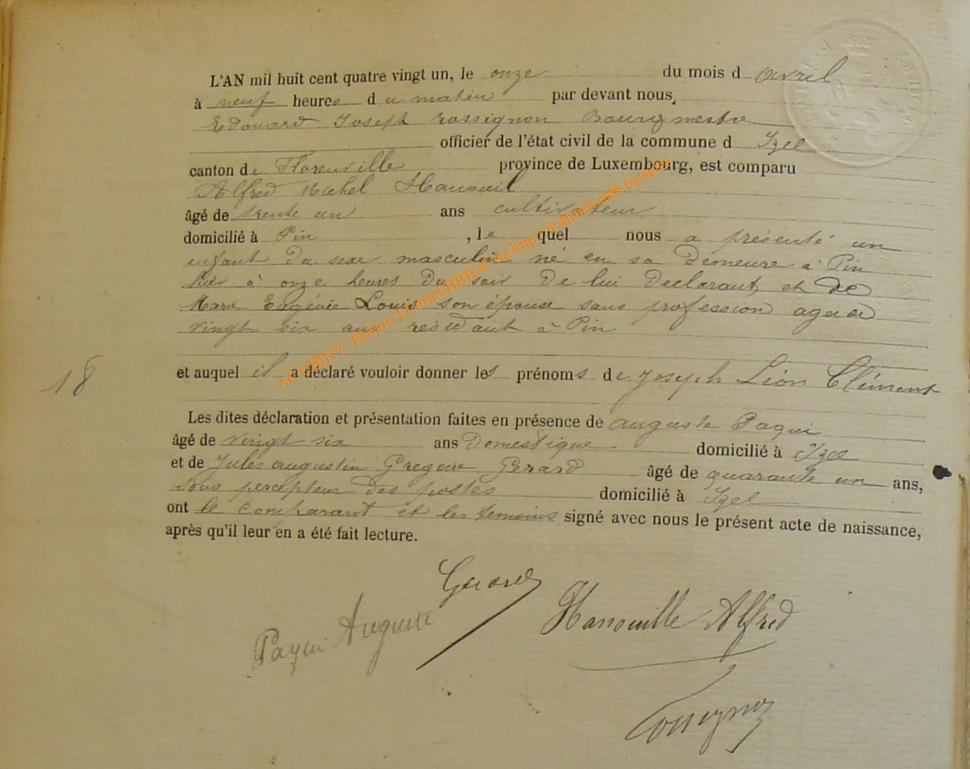 L'AN mil huit cent quatre vingt un, le onze du mois d avril
à neuf heures du matin par devant nous,
Edouard Joseph Rossignon Bourgmestre
officier de l'état civil de la commune d Izel
canton de Florenville province de Luxembourg, est comparu
Alfred Michel Hanouil
âgé de trente un ans cultivateur
domicilié à Pin, le quel nous a présenté un
enfant du sexe masculin né en sa demeure à Pin
hier à onze heures du soir de lui Declarant et de
Marie Eugénie Louis son épouse sans profession agée de
vingt six ans résidant à Pin
18
et auquel il a déclaré vouloir donner les prénoms de Joseph Léon Clément
Les dites déclaration et présentation faites en présence de auguste Paqui
âgé de vingt six ans Domestique domicilié à Izel
et de Jules augustin Gregoire Gerard âgé de quarante un ans,
sous percepteur des postes domicilié à Izel
ont le comparant et les temoins signé avec nous le présent acte de naissance,
après qu'il leur en a été fait lecture.
Gerard
Paqui Auguste
Hanouille Alfred
Rossignon